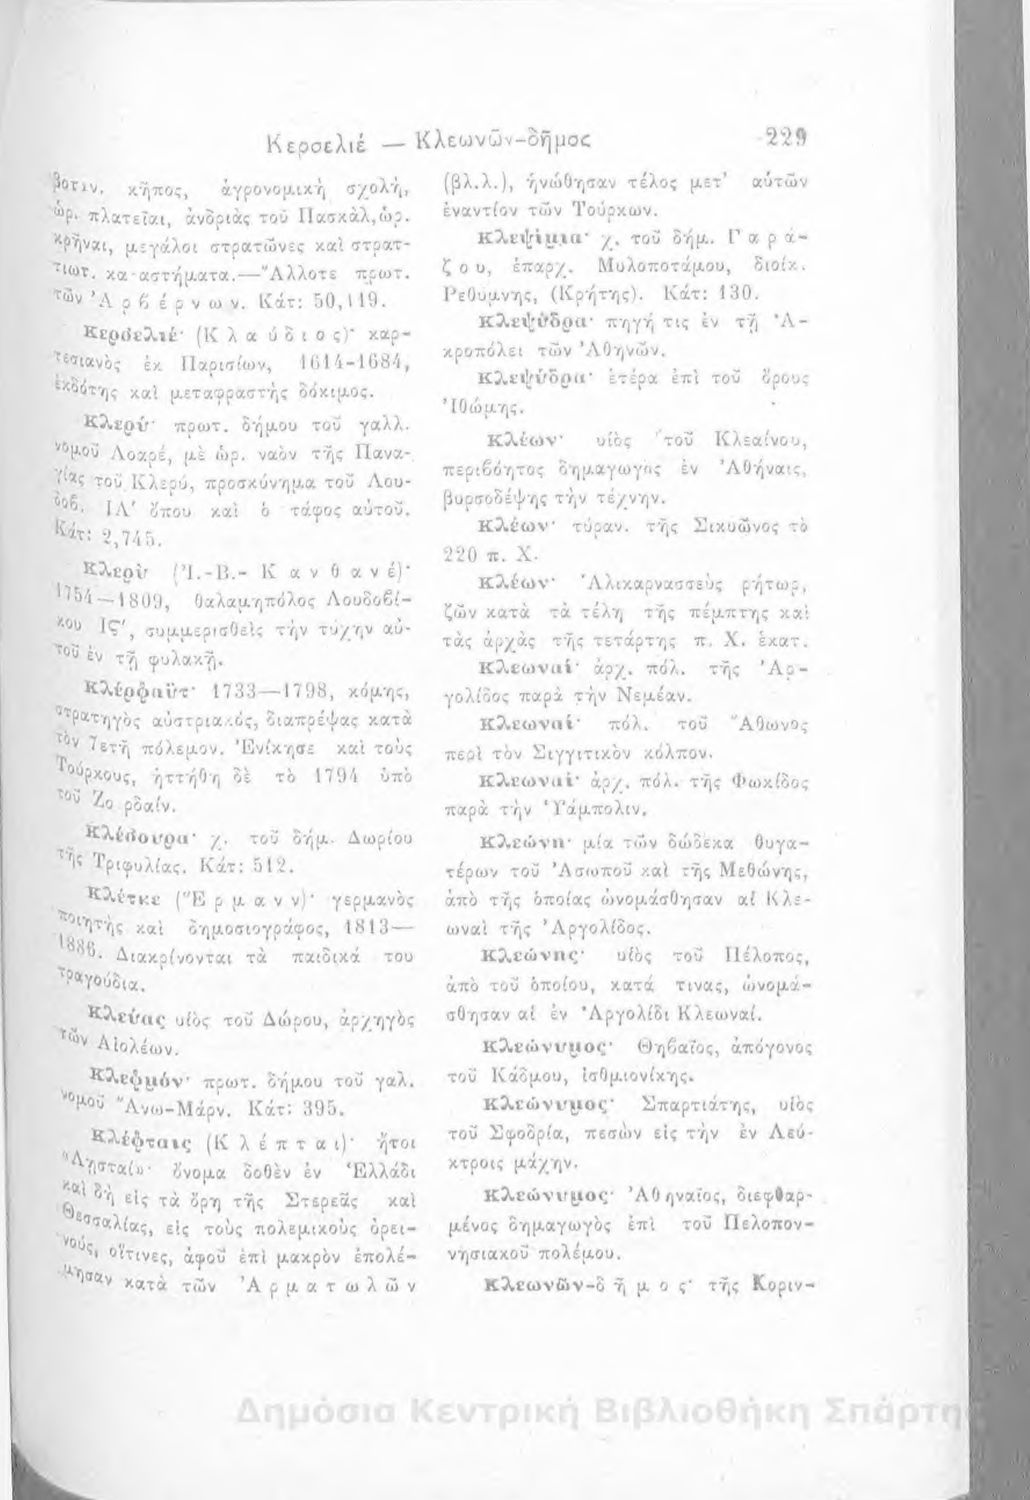 Κερσελιέ — Κλεωνῶν-δῆμος 229
βοτιν. κῆπος, ἀγρονομικὴ σχολή,
ὡρ. πλατεῖαι, ἀνδριὰς τοῦ Πασκάλ, ὡρ.
κρῆναι, μεγάλοι στρατῶνες καὶ στρατ-
τιωτ. κα αστήματα.—Ἄλλοτε πρωτ.
τῶν Ἀρβέρνων. Κάτ: 50,119.
Κερσελιέ· (Κλαύδιος)· καρ-
τεσιανὸς ἐκ Παρισίων, 1614-1684,
ἐκδότης καὶ μεταφραστὴς δόκιμος.
Κλερύ· πρωτ. δήμου τοῦ γαλλ.
νομοῦ Λοαρέ, μὲ ὡρ. ναὸν τῆς Πανα-
γίας τοῦ Κλερύ, προσκύνημα τοῦ Λου-
δοβ. ΙΑ' ὅπου καὶ ὁ τάφος αὐτοῦ.
Κάτ: 2,745.
Κλερὺ (Ἰ.-Β.- Κανθανέ)·
1754—1809, θαλαμηπόλος Λουδοβί-
κου Ιϛ', συμμερισθεὶς τὴν τύχην αὐ-
τοῦ ἐν τῇ φυλακῇ.
Κλέρφαϋτ· 1733—1798, κόμης,
στρατηγὸς αὐστριακός, διαπρέψας κατὰ
τὸν 7ετῆ πόλεμον. Ἐνίκησε καὶ τοὺς
Τούρκους, ἡττήθη δὲ τὸ 1794 ὑπὸ
τοῦ Ζο ρδαίν.
Κλέσουρα· χ. τοῦ δήμ. Δωρίου
τῆς Τριφυλίας. Κάτ: 512.
Κλέτκε (Ἕρμανν)· γερμανὸς
ποιητὴς καὶ δημοσιογράφος, 1813—
1886. Διακρίνονται τὰ παιδικά του
τραγούδια.
Κλεύας υἱὸς τοῦ Δώρου, ἀρχηγὸς
τῶν Αἰολέων.
Κλεφμόν· πρωτ. δήμου τοῦ γαλ.
νομοῦ Ἄνω-Μάρν. Κάτ: 395.
Κλέφταις (Κλέπται)· ἤτοι
«Λῃσταί»· ὄνομα δοθὲν ἐν Ἑλλάδι
καὶ δὴ εἰς τὰ ὄρη τῆς Στερεᾶς καὶ
Θεσσαλίας, εἰς τοὺς πολεμικοὺς ὀρει-
νούς, οἵτινες, ἀφοῦ ἐπὶ μακρὸν ἐπολέ-
μησαν κατὰ τῶν Ἀρματωλῶν
(βλ.λ.), ἡνώθησαν τέλος μετ' αὐτῶν
ἐναντίον τῶν Τούρκων.
Κλεψίμια· χ. τοῦ δήμ. Γαρά-
ζου, ἐπαρχ. Μυλοποτάμου, διοίκ.
Ρεθύμνης, (Κρήτης). Κάτ: 130.
Κλεψύδρα· πηγή τις ἐν τῇ Ἀ-
κροπόλει τῶν Ἀθηνῶν.
Κλεψύδρα· ἑτέρα ἐπὶ τοῦ ὄρους
Ἰθώμης.
Κλέων· υἱὸς τοῦ Κλεαίνου,
περιβόητος δημαγωγὸς ἐν Ἀθήναις,
βυρσοδέψης τὴν τέχνην.
Κλέων· τύραν. τῆς Σικυῶνος τὸ
220 π. Χ.
Κλέων· Ἁλικαρνασσεὺς ρήτωρ,
ζῶν κατὰ τὰ τέλη τῆς πέμπτης καὶ
τὰς ἀρχὰς τῆς τετάρτης π. Χ. ἑκατ.
Κλεωναί· ἀρχ. πόλ. τῆς Ἀρ-
γολίδος παρὰ τὴν Νεμέαν.
Κλεωναί· πόλ. τοῦ Ἄθωνος
περὶ τὸν Σιγγιτικὸν κόλπον.
Κλεωναί· ἀρχ. πόλ. τῆς Φωκίδος
παρὰ τὴν Ὑάμπολιν.
Κλεώνη· μία τῶν δώδεκα θυγα-
τέρων τοῦ Ἀσωποῦ καὶ τῆς Μεθώνης,
ἀπὸ τῆς ὁποίας ὠνομάσθησαν αἱ Κλε-
ωναὶ τῆς Ἀργολίδος.
Κλεώνης· υἱὸς τοῦ Πέλοπος,
ἀπὸ τοῦ ὁποίου, κατά τινας, ὠνομά-
σθησαν αἱ ἐν Ἀργολίδι Κλεωναί.
Κλεώνυμος· Θηβαῖος, ἀπόγονος
τοῦ Κάδμου, ἰσθμιονίκης.
Κλεώνυμος· Σπαρτιάτης, υἱὸς
τοῦ Σφοδρία, πεσὼν εἰς τὴν ἐν Λεύ-
κτροις μάχην.
Κλεώνυμος· Ἀθηναῖος, διεφθαρ-
μένος δημαγωγὸς ἐπὶ τοῦ Πελοπον-
νησιακοῦ πολέμου.
Κλεωνῶν-δῆμος· τῆς Κοριν-
Δημόσια Κεντρική Βιβλιοθήκη Σπάρτης